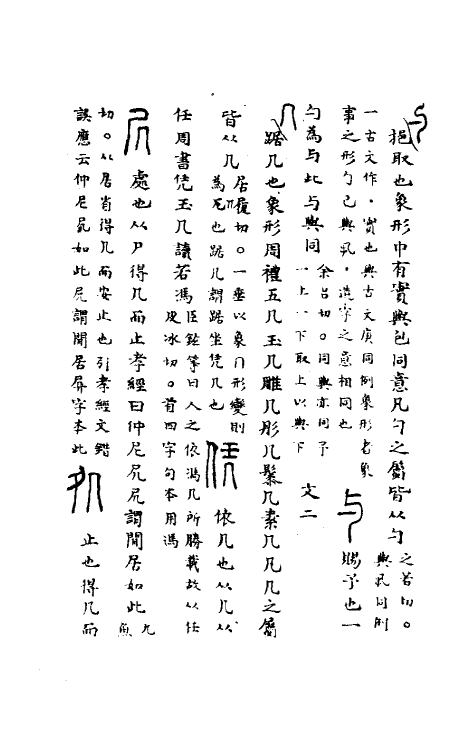 挹取也象形中有實與包同意凡勺之屬皆从勺
之若切。
一古文作,實也與古文庚同例象形者象
事之形勺已與,造字之意相同也
賜予也一
勺為与此与與同
余呂切。同與亦同予
一上一下取上以與下
文二
踞几也象形周禮五几玉几雕几彤几鬃几素几凡几之屬
皆从几
居履切。一垂以象冂形變則
為兀也踞几謂踞坐凭几也
依几也从几从
任周書凭玉几讀若馮
臣鉉等曰人之依馮几所勝載故从任
皮冰切。首四字句本用馮
処也从尸得几而止孝經曰仲尼凥凥謂閒居如此
九
魚
切。从居省得几而安止也引孝經文鍇
誤應云仲尼凥如此凥謂閒居屏字本此
止也得几而